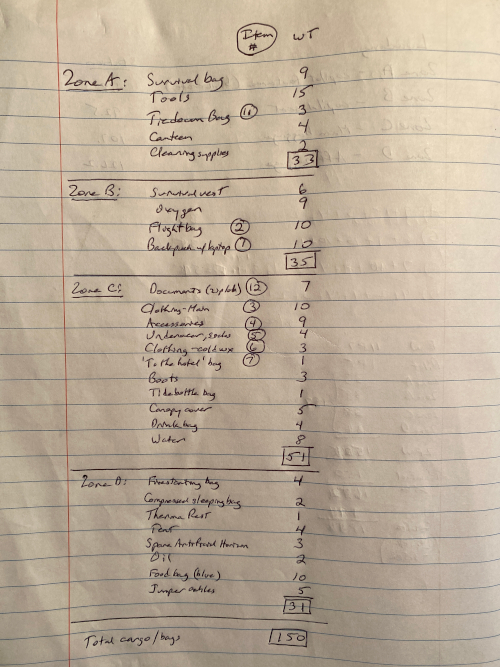 Item # WT
Zone A: Survival bag 9
Tools 15
Bag 11 3
Canteen 4
Cleaning supplies 2
33
Zone B: Survival vest 6
Oxygen 9
Flight bag 2 10
Backpack w/laptop 1 10
35
Zone C: Documents (ziplock) 12 7
Clothing-Main 3 10
Accessories 4 9
Underwear, socks 5 4
Clothing-cold wx 6 3
"To the hotel" bag 7 1
Boots 3
Tiedottle bag 1
Canopy cover 5
Drink bag 4
Water 8
51
Zone D: bag 4
Compressed sleeping bag 2
Therma Rest 1
Tent 4
Spare 3
Oil 2
Food bag (blue) 10
Jumper cables 5
31
Total cargo/bags 150